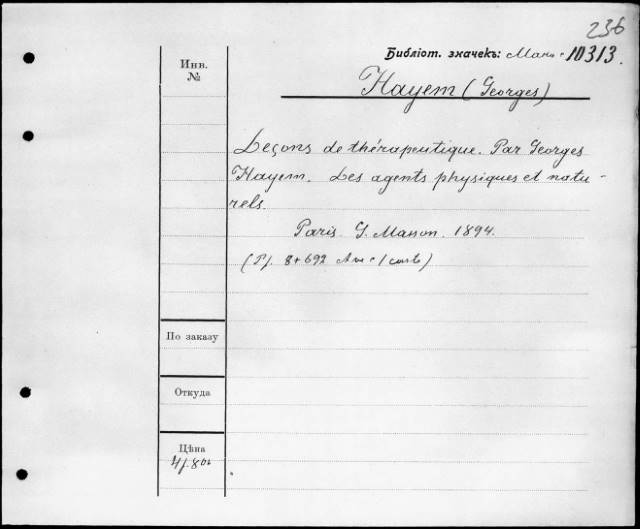 236
Библіот. значекъ: 10313.
Инв.
№
Hayem (Georges)
Leçons de thérapeutique. Par Georges
Hayem. Les agents physiques et natu-
rels.
Paris. G. Masson. 1894.
8+692
По заказу
Откуда
Цѣна